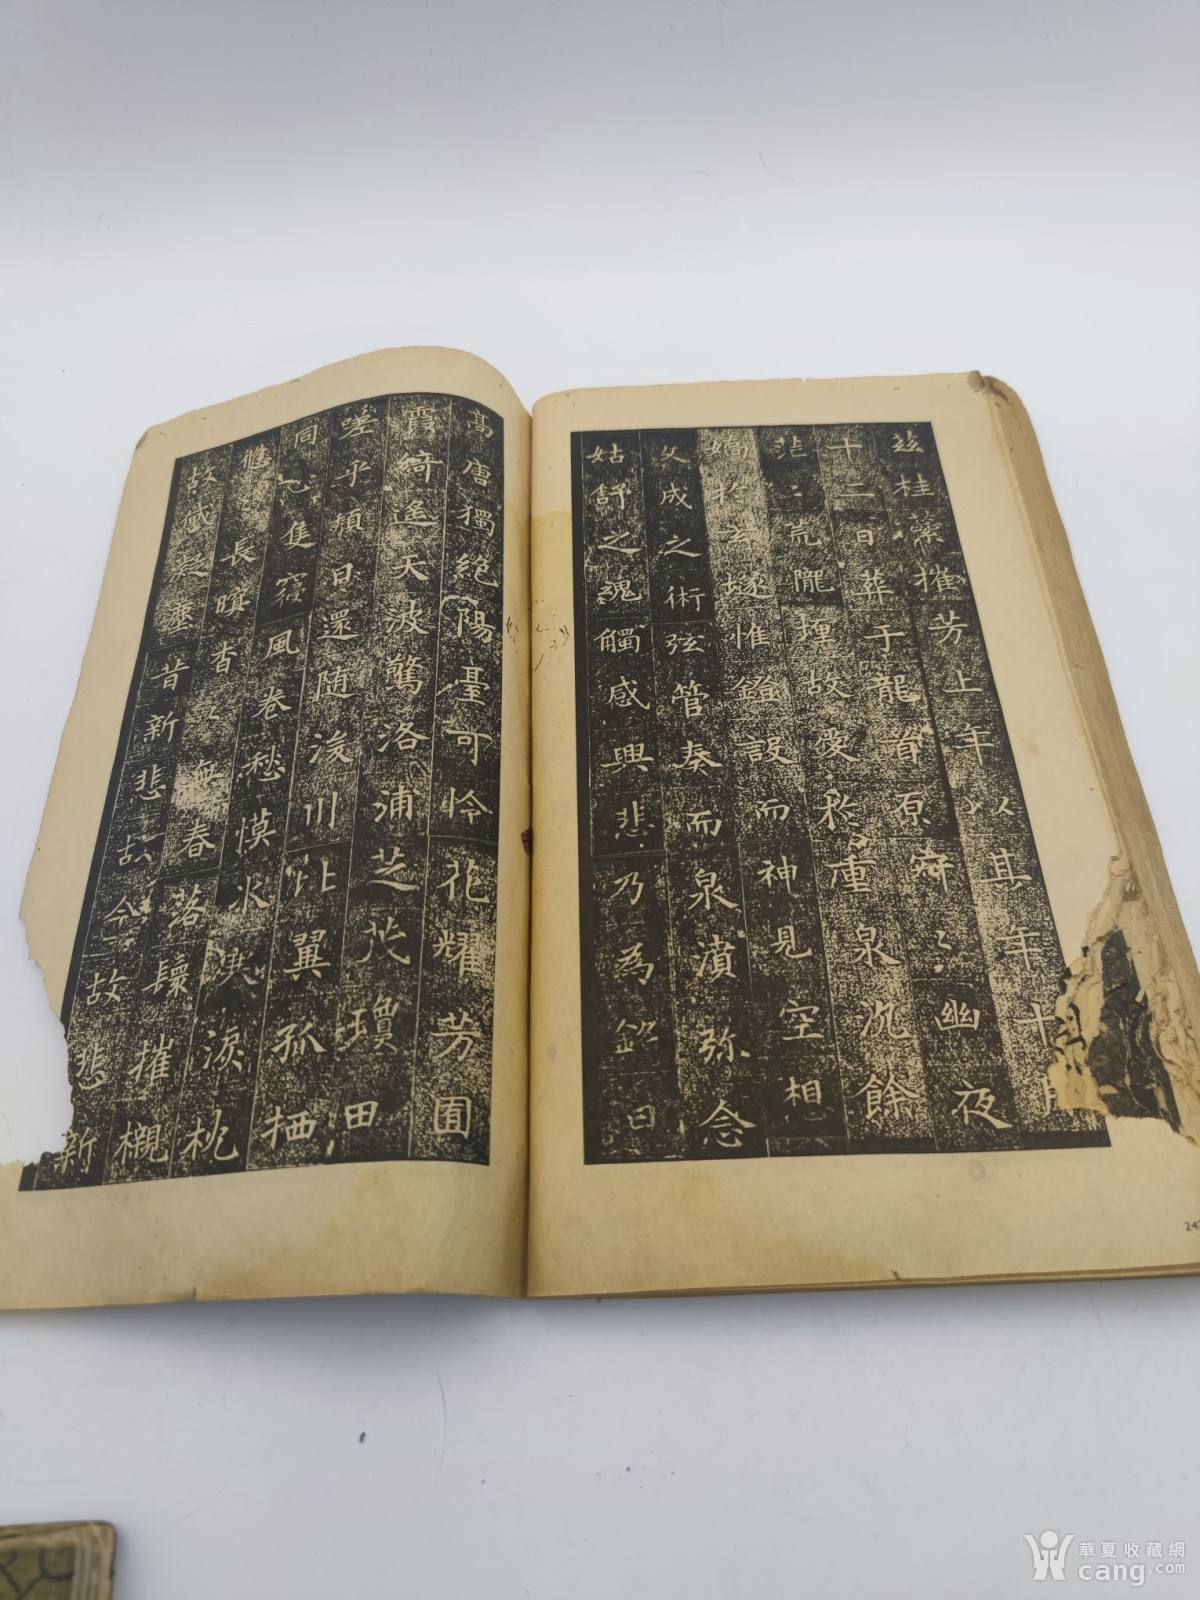 兹桂蘂摧芳上年〻以其年十月
十二日葬于龍首原宑〻幽夜
茫〻荒隴埋故愛於重泉沉餘
嬌於玄隧惟鐙設而神見空想
文成之術弦管奏而泉濆弥念
姑舒之魂觸感興悲乃為銘曰
高唐獨絕陽臺可怜花耀芳囿
霞綺遙天波驚洛浦芝茂瓊田
嗟乎頹日還随湲川比翼孤栖
同心隻寢風卷愁幙冰淚枕
悠長暝杳〻無春落鬟摧櫬
故黛凝塵昔新悲故今故悲新
247
華夏收藏網
cang.com